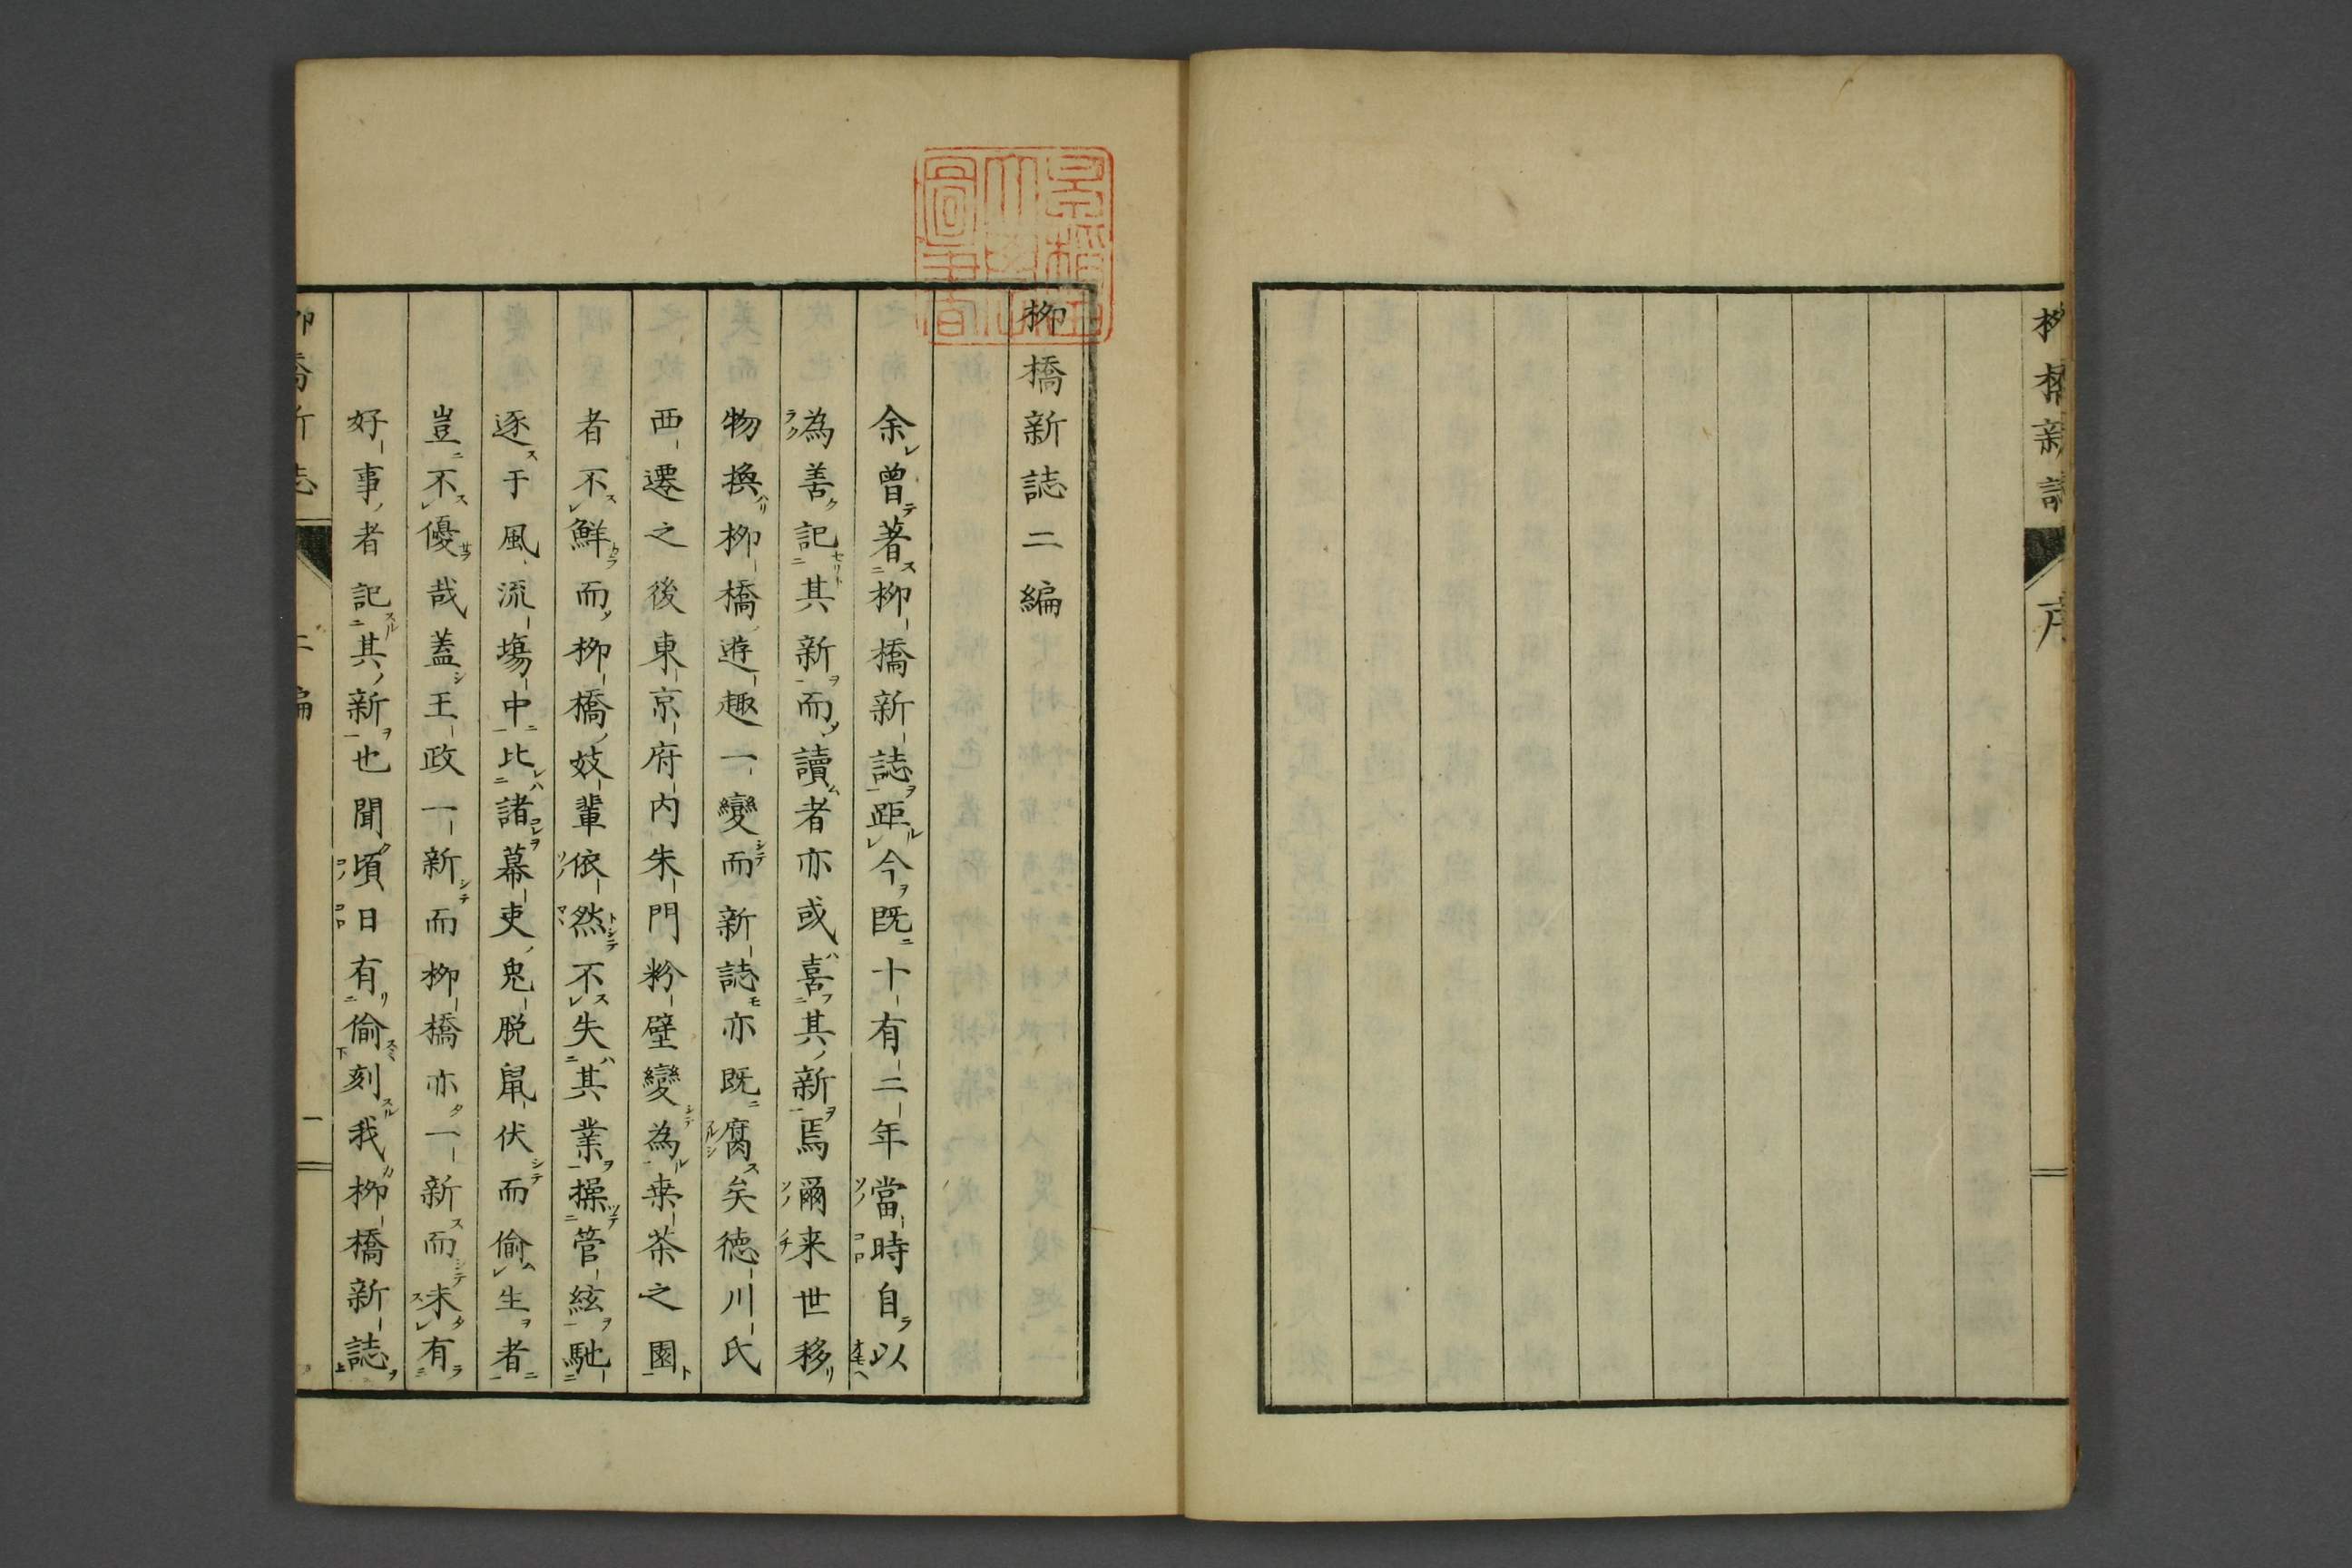 柳橋新誌
序
柳橋新誌二編
余曾著柳橋新誌距今既十有二年當時自以
為善記其新而讀者亦或喜其新焉爾来世移
物換柳橋遊趣一變而新誌亦既腐矣徳川氏
西遷之後東京府内朱門粉壁變為桒茶之園
者不鮮而柳橋妓輩依然不失其業操管絃馳
逐于風流場中比諸幕吏兔脱鼠伏而偷生者
豈不優哉蓋王政一新而柳橋亦一新而未有
好事者記其新也聞頃日有偷刻我柳橋新誌
柳橋新誌 二編 一